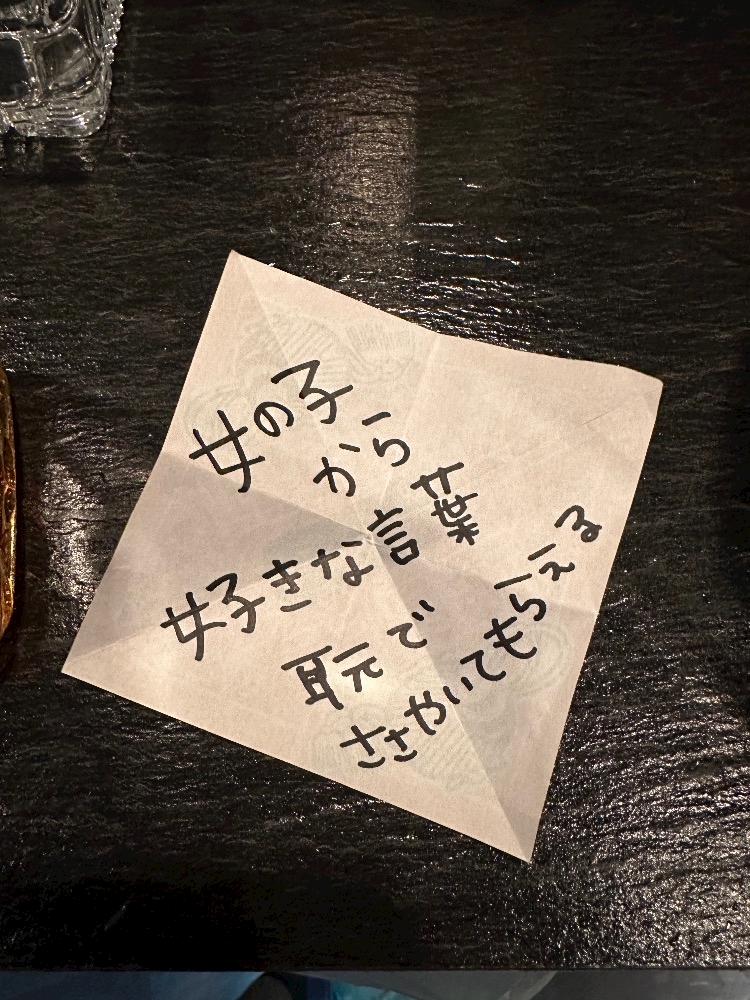 女の子
から
好きな言葉
耳元で
ささやいてもらえる